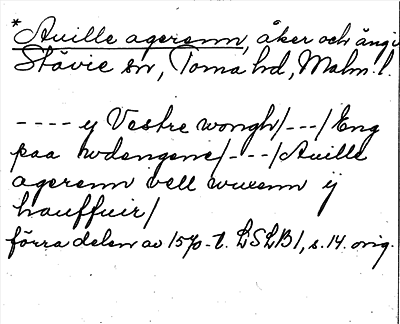 *Auille agerenn, åker och äng i
Stävie sn, Torna hd, Malm. l.
---- y Vestre wongh/---/Eng
paa hodengene/---/Auille
agerenn vell wuxenn ÿ
hauffuir/
förra delen av 15 -t. LSLB1, s. 14. orig.